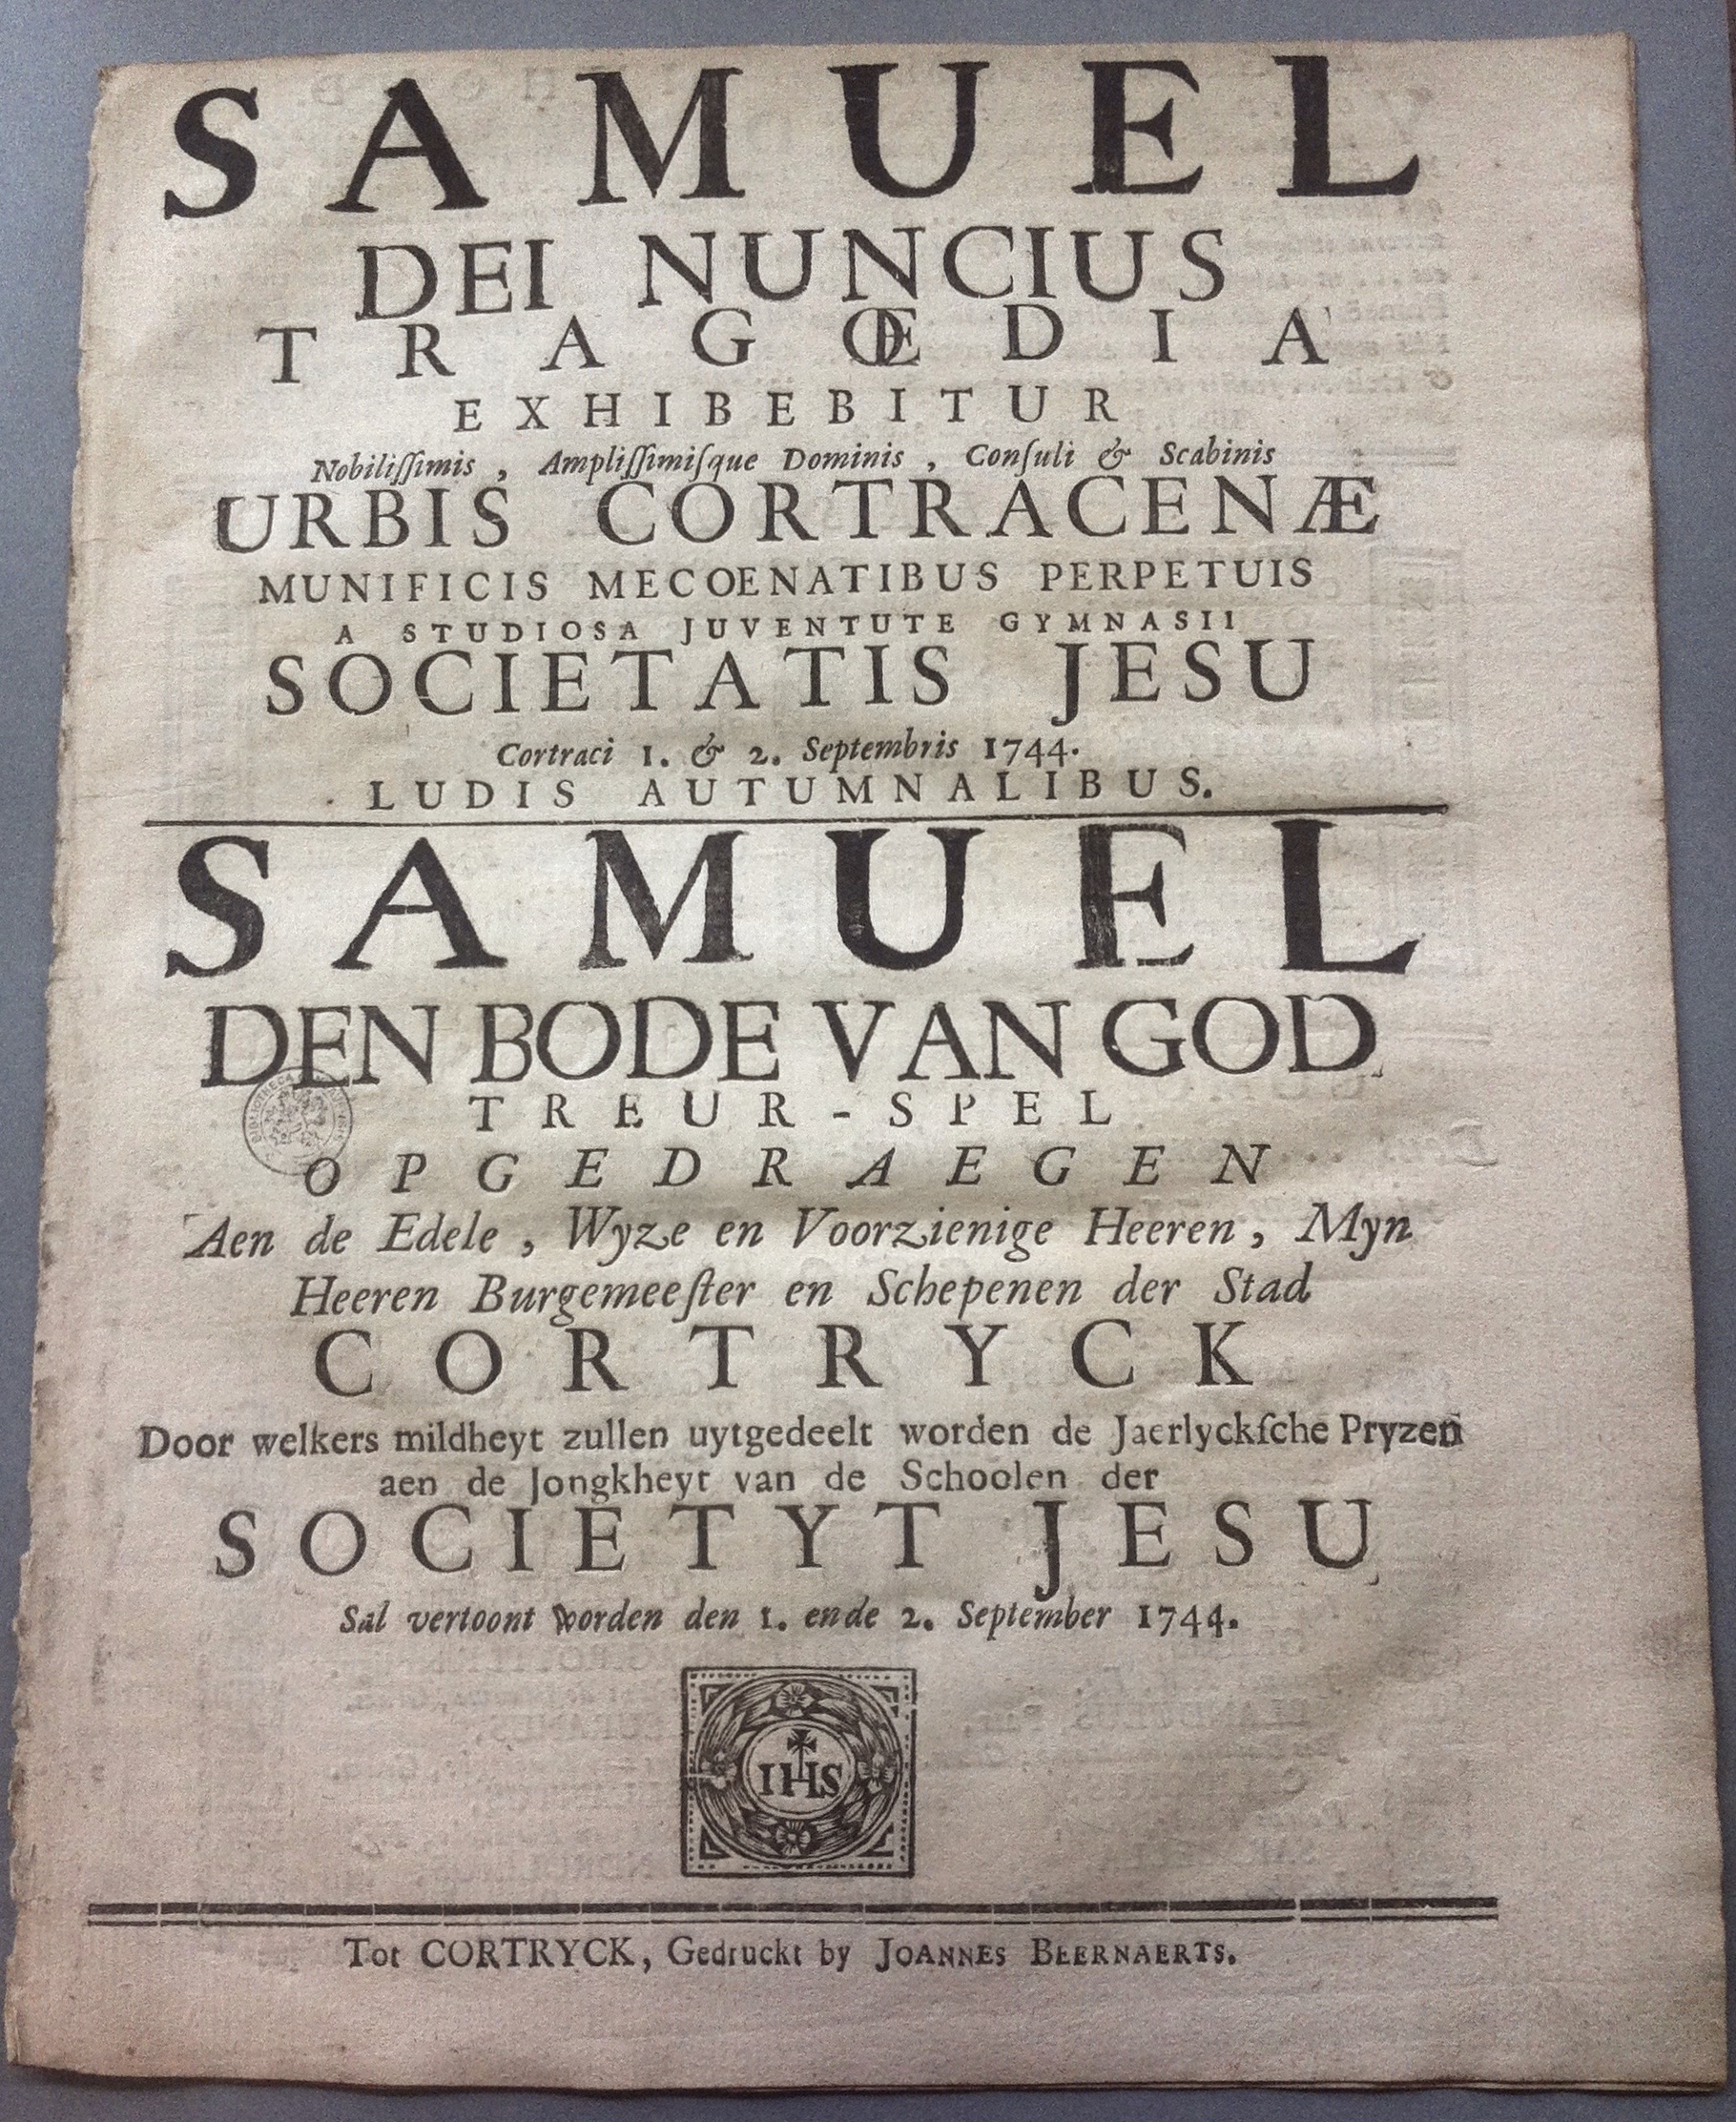 SAMUEL
DEI NUNCIUS
TRAGŒDIA
EXHIBEBITUR
Nobiliſſimis , Ampliſſimiſque Dominis , Conſuli & Scabinis
URBIS CORTRACENÆ
MUNIFICIS MECOENATIBUS PERPETUIS
A STUDIOSA JUVENTUTE GYMNASII
SOCIETATIS JESU
Cortraci 1. & 2. Septembris 1744.
LUDIS AUTUMNALIBUS.
SAMUEL
DEN BODE VAN GOD
TREUR-SPEL
OPGEDRAEGEN
Aen de Edele , Wyze en Voorzienige Heeren , Myn
Heeren Burgemeeſter en Schepenen der Stad
CORTRYCK
Door welkers mildheyt zullen uytgedeelt worden de Jaerlyckſche Pryzen
aen de Jongkheyt van de Schoolen der
SOCIETYT JESU
Sal vertoont worden den 1. ende 2. September 1744.
IHS
Tot CORTRYCK, Gedruckt by JOANNES BEERNAERTS.